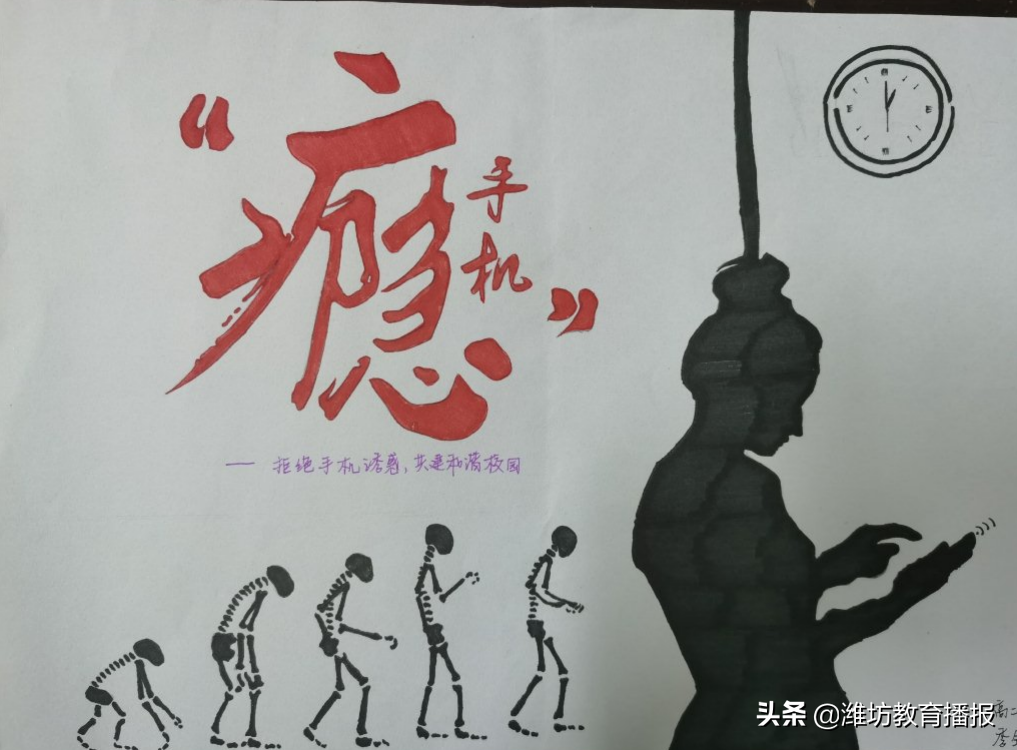 “瘾”
手机
— 拒绝手机诱惑，共建和谐校园
头条 @潍坊教育播报